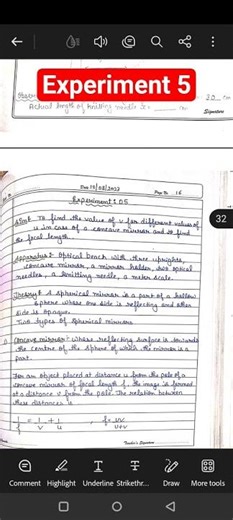 Experiment 5
Actual length of knitting needle x = ____ cm
Signature
32
Page No. 16
Experiment: 05
Aim: To find the value of v for different values of
u in case of a concave mirror and to find
the focal length.
Apparatus: Optical bench with three uprights,
concave mirror, a mirror holder, two optical
needles, a knitting needle, a meter scale.
Theory: A spherical mirror is a part of a hollow
sphere whose one side is reflecting and other
side is opaque.
Two types of spherical mirrors
Concave mirror: whose reflecting surface is towards
the centre of the sphere of which the mirror is a
part.
For an object placed at distance u from the pole of a
concave mirror of focal length f, the image is formed
at a distance v from the pole. The relation between
these distances is
1/f = 1/v + 1/u , f = uv/u+v
Teacher's Signature
Comment Highlight Underline Strikethr... Draw More tools